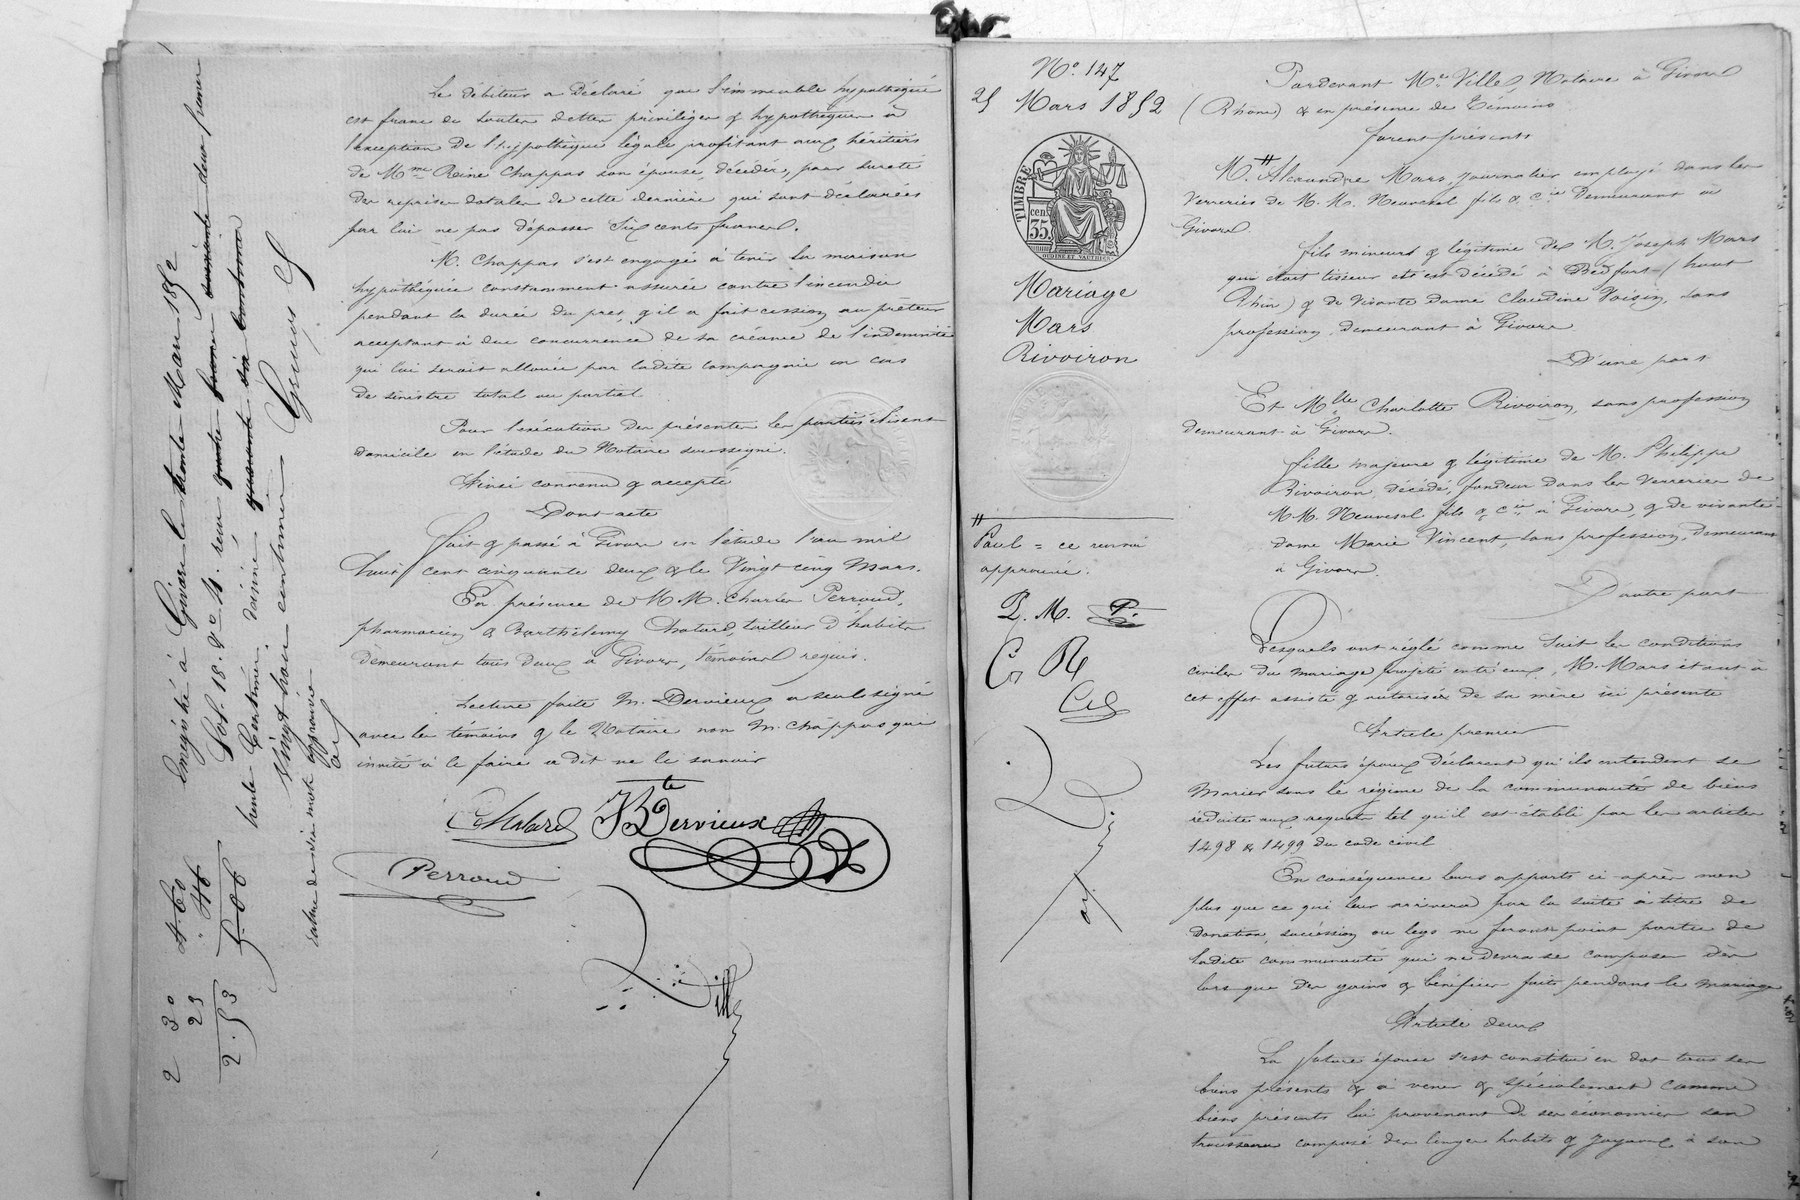 Le débiteur a Déclaré que l'immeuble hypothéqué
est franc de toutes dettes privilèges & hypothèques à
l'exception de l'hypothèque légale profitant aux héritiers
de Mme Reine Chappas son épouse, décédée, pour sureté
des reprises dotales de cette dernière qui sont déclarées
par lui ne pas dépasser Six cents francs.
M. Chappas s'est engagé à tenir la maison
hypothéquée constamment assurée contre l'incendie
pendant la durée du pret, & il a fait cession au prêteur
acceptant à due concurrence de sa créance de l'indemnité
qui lui serait allouée par ladite compagnie en cas
de sinistre total ou partiel.
Pour l'exécution des présentes les parties élisent
domicile en l'étude du Notaire soussigné.
Ainsi convenu & accepté
Dont acte
Fait & passé à Givors en l'étude l'an mil
huit cent cinquante deux & le Vingt cinq Mars.
En présence de M.M. Charles Perroud,
pharmacien & Barthélemy Chatard, tailleur d'habits
demeurant tous deux à Givors, témoins requis.
Lecture faite M. Dervieux a seul signé
avec les témoins & le Notaire non M. Chappas qui
invité à le faire a dit ne le savoir
Chatard JBte Dervieux
Perroud
Ville
Enregistré à Givors le trente Mars 1852
Fol. 18. Ro
centimes
Vingt trois centimes
4.60
" 46
5.06
2 30
23
2.53
No 147
25 Mars 1852
TIMBRE
35 cen.
OUDINÉ ET VAUTHIER
Mariage
Mars
Rivoiron
Paul = ce renvoi
approuvé.
P. M.
C R
Pardevant Me Ville, Notaire à Givors
(Rhône) & en présence de témoins
furent présents
M. Alexandre Mars, journalier employé dans les
Verreries de M.M. Neuvesel fils & Cie demeurant à
Givors.
fils mineur & légitime de M. Joseph Mars
qui était tisseur est décédé à Bedfort (haut
Rhin) & de vivante dame Claudine Voisin, sans
profession, demeurant à Givors
D'une part
Et Mlle Charlotte Rivoiron, sans profession
demeurant à Givors.
fille majeure & légitime de M. Philippe
Rivoiron, décédé, fondeur dans les Verreries de
M.M. Neuvesel fils & Cie à Givors, & de vivante
dame Marie Vincent, sans profession, demeurant
à Givors.
D'autre part
Lesquels ont réglé comme suit les conditions
civiles du mariage projeté entr'eux, M. Mars étant à
cet effet assisté & autorisé de sa mère ici présente
Article premier
Les futurs époux déclarent qu'ils entendent se
Marier sous le régime de la communauté de biens
réduite aux acquets tel qu'il est établi par les articles
1498 & 1499 du code civil.
En conséquence leurs apports ci-après non
plus que ce qui leur arrivera par la suite à titre de
donation, succession ou legs ne feront point partie de
ladite communauté qui ne devra se composer dès
lors que des gains & bénéfices faits pendant le mariage
Article deux
La future épouse s'est constitué en dot tous ses
biens présents & à venir & spécialement comme
biens présents lui provenant de ses économies son
trousseau composé des linges habits & joyaux à son